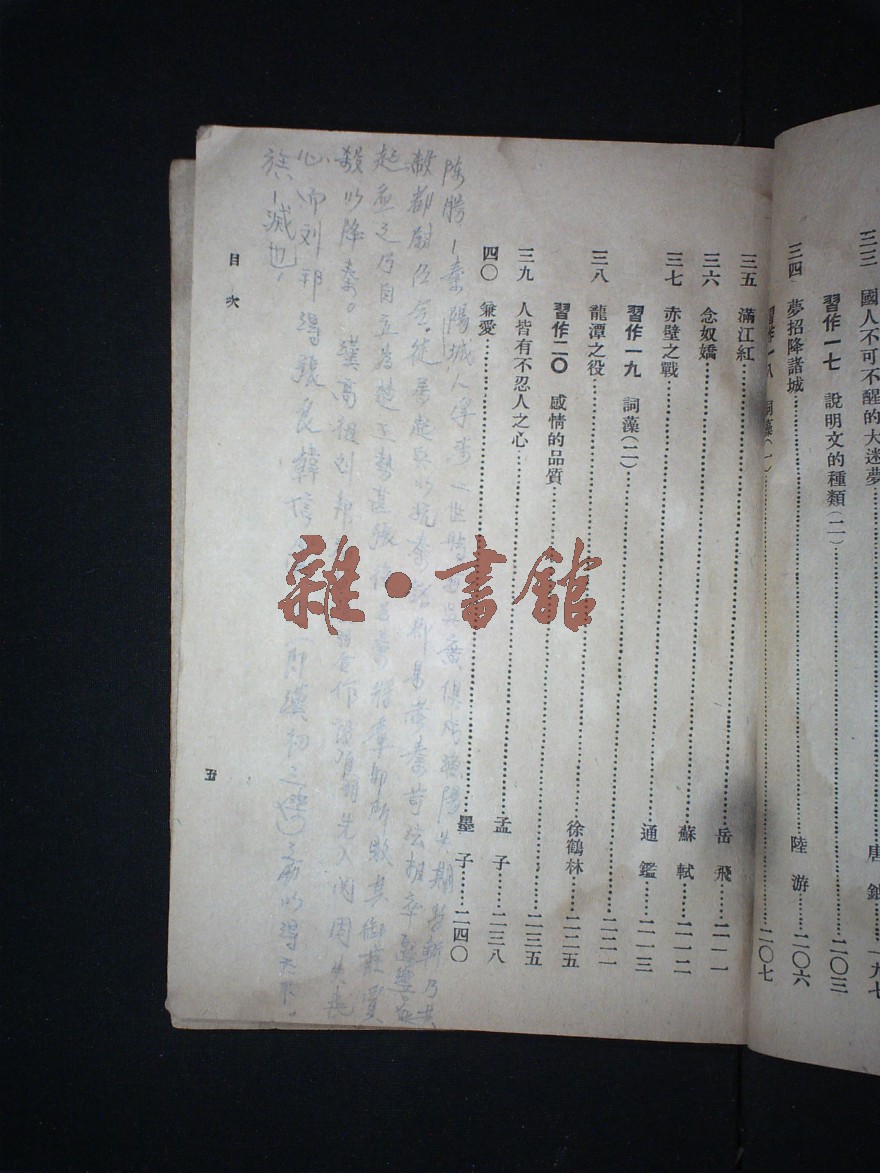 三三 國人不可不醒的大迷夢 唐 一九七
習作一七 說明文的種類(二) 二〇三
三四 夢招降諸城 陸游 二〇六
習作一八 詞藻(一) 二〇七
三五 滿江紅 岳飛 二一一
三六 念奴嬌 蘇軾 二一二
三七 赤壁之戰 通鑑 二一三
習作一九 詞藻(二) 二二一
三八 龍潭之役 徐鶴林 二二五
習作二〇 感情的品質 二三五
三九 人皆有不忍人之心 孟子 二三八
四〇 兼愛 墨子 二四〇
陳勝 秦陽城人 二世時 吳廣俱戍漁陽失期當斬乃共
殺都尉 秦苛法
起應之乃自立為楚王勢甚張 後 秦將章邯所敗其御莊賈
殺以降秦。漢高祖刘邦 先入関
心而刘邦得張良韓信 (即漢初三傑) 所以得天下。
滅也
目次
五
雜·書館